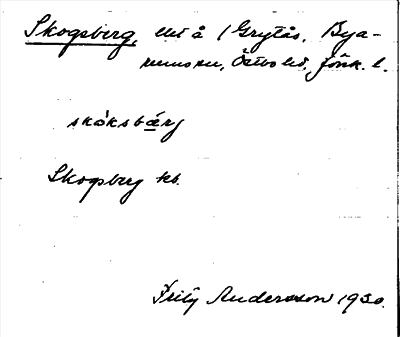 Skogsberg, ett å 1 Grytås, Bya-
rums sn, Östbo hd, Jönk. l.
skóksbärj
Skogsberg kb.
Fritz Andersson 1930.